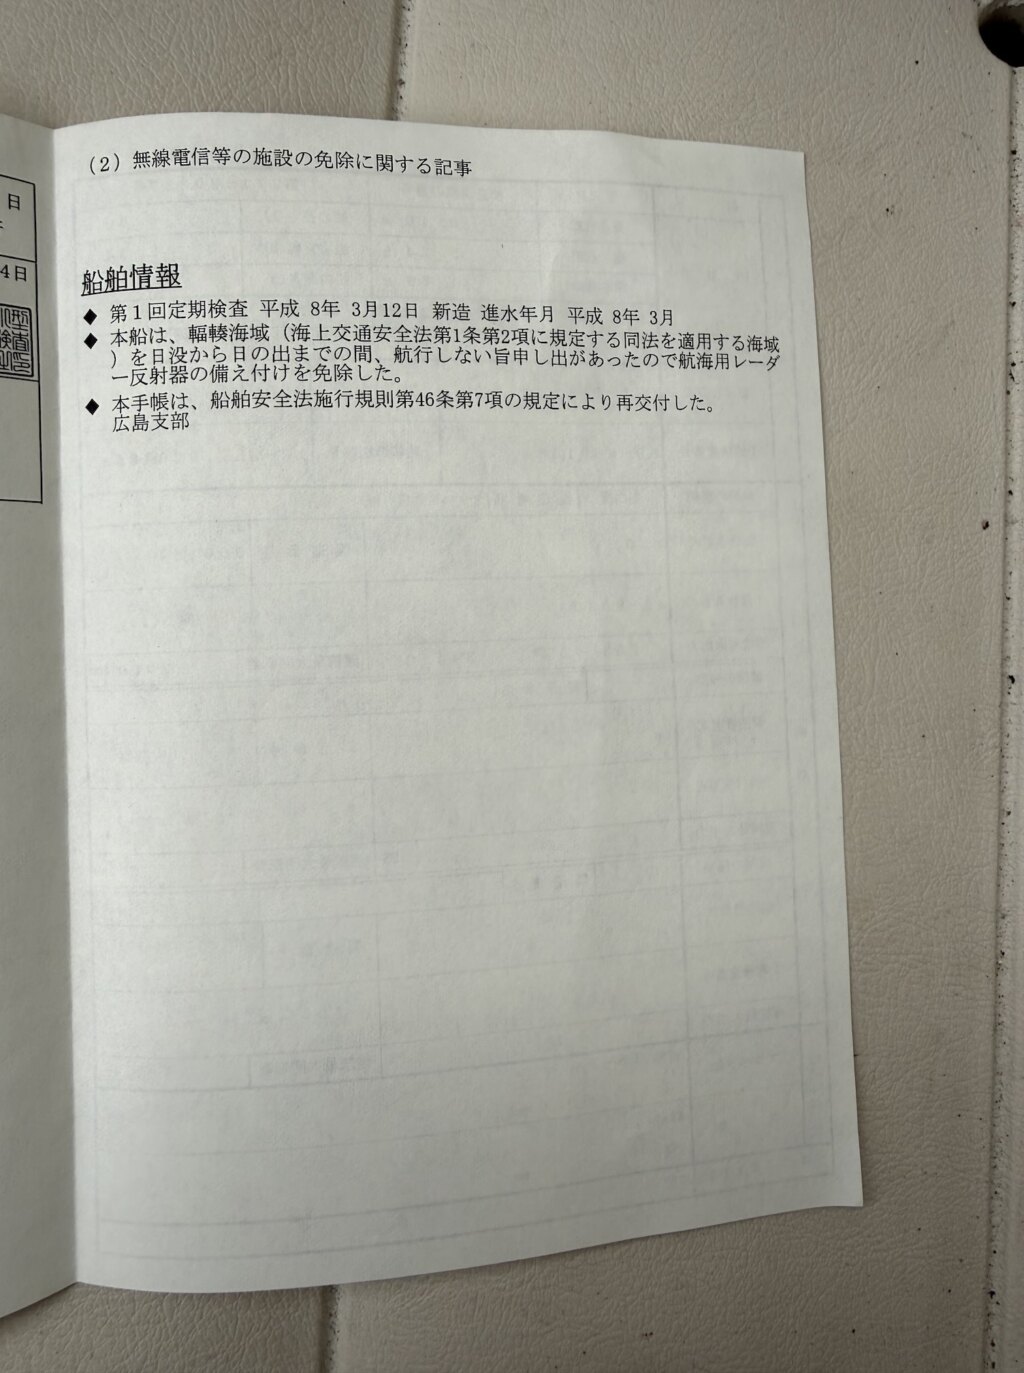 (2) 無線電信等の施設の免除に関する記事
日
4日
船舶情報
◆ 第1回定期検査 平成 8年 3月12日 新造 進水年月 平成 8年 3月
◆ 本船は、輻輳海域（海上交通安全法第1条第2項に規定する同法を適用する海域
）を日没から日の出までの間、航行しない旨申し出があったので航海用レーダ
ー反射器の備え付けを免除した。
◆ 本手帳は、船舶安全法施行規則第46条第7項の規定により再交付した。
広島支部